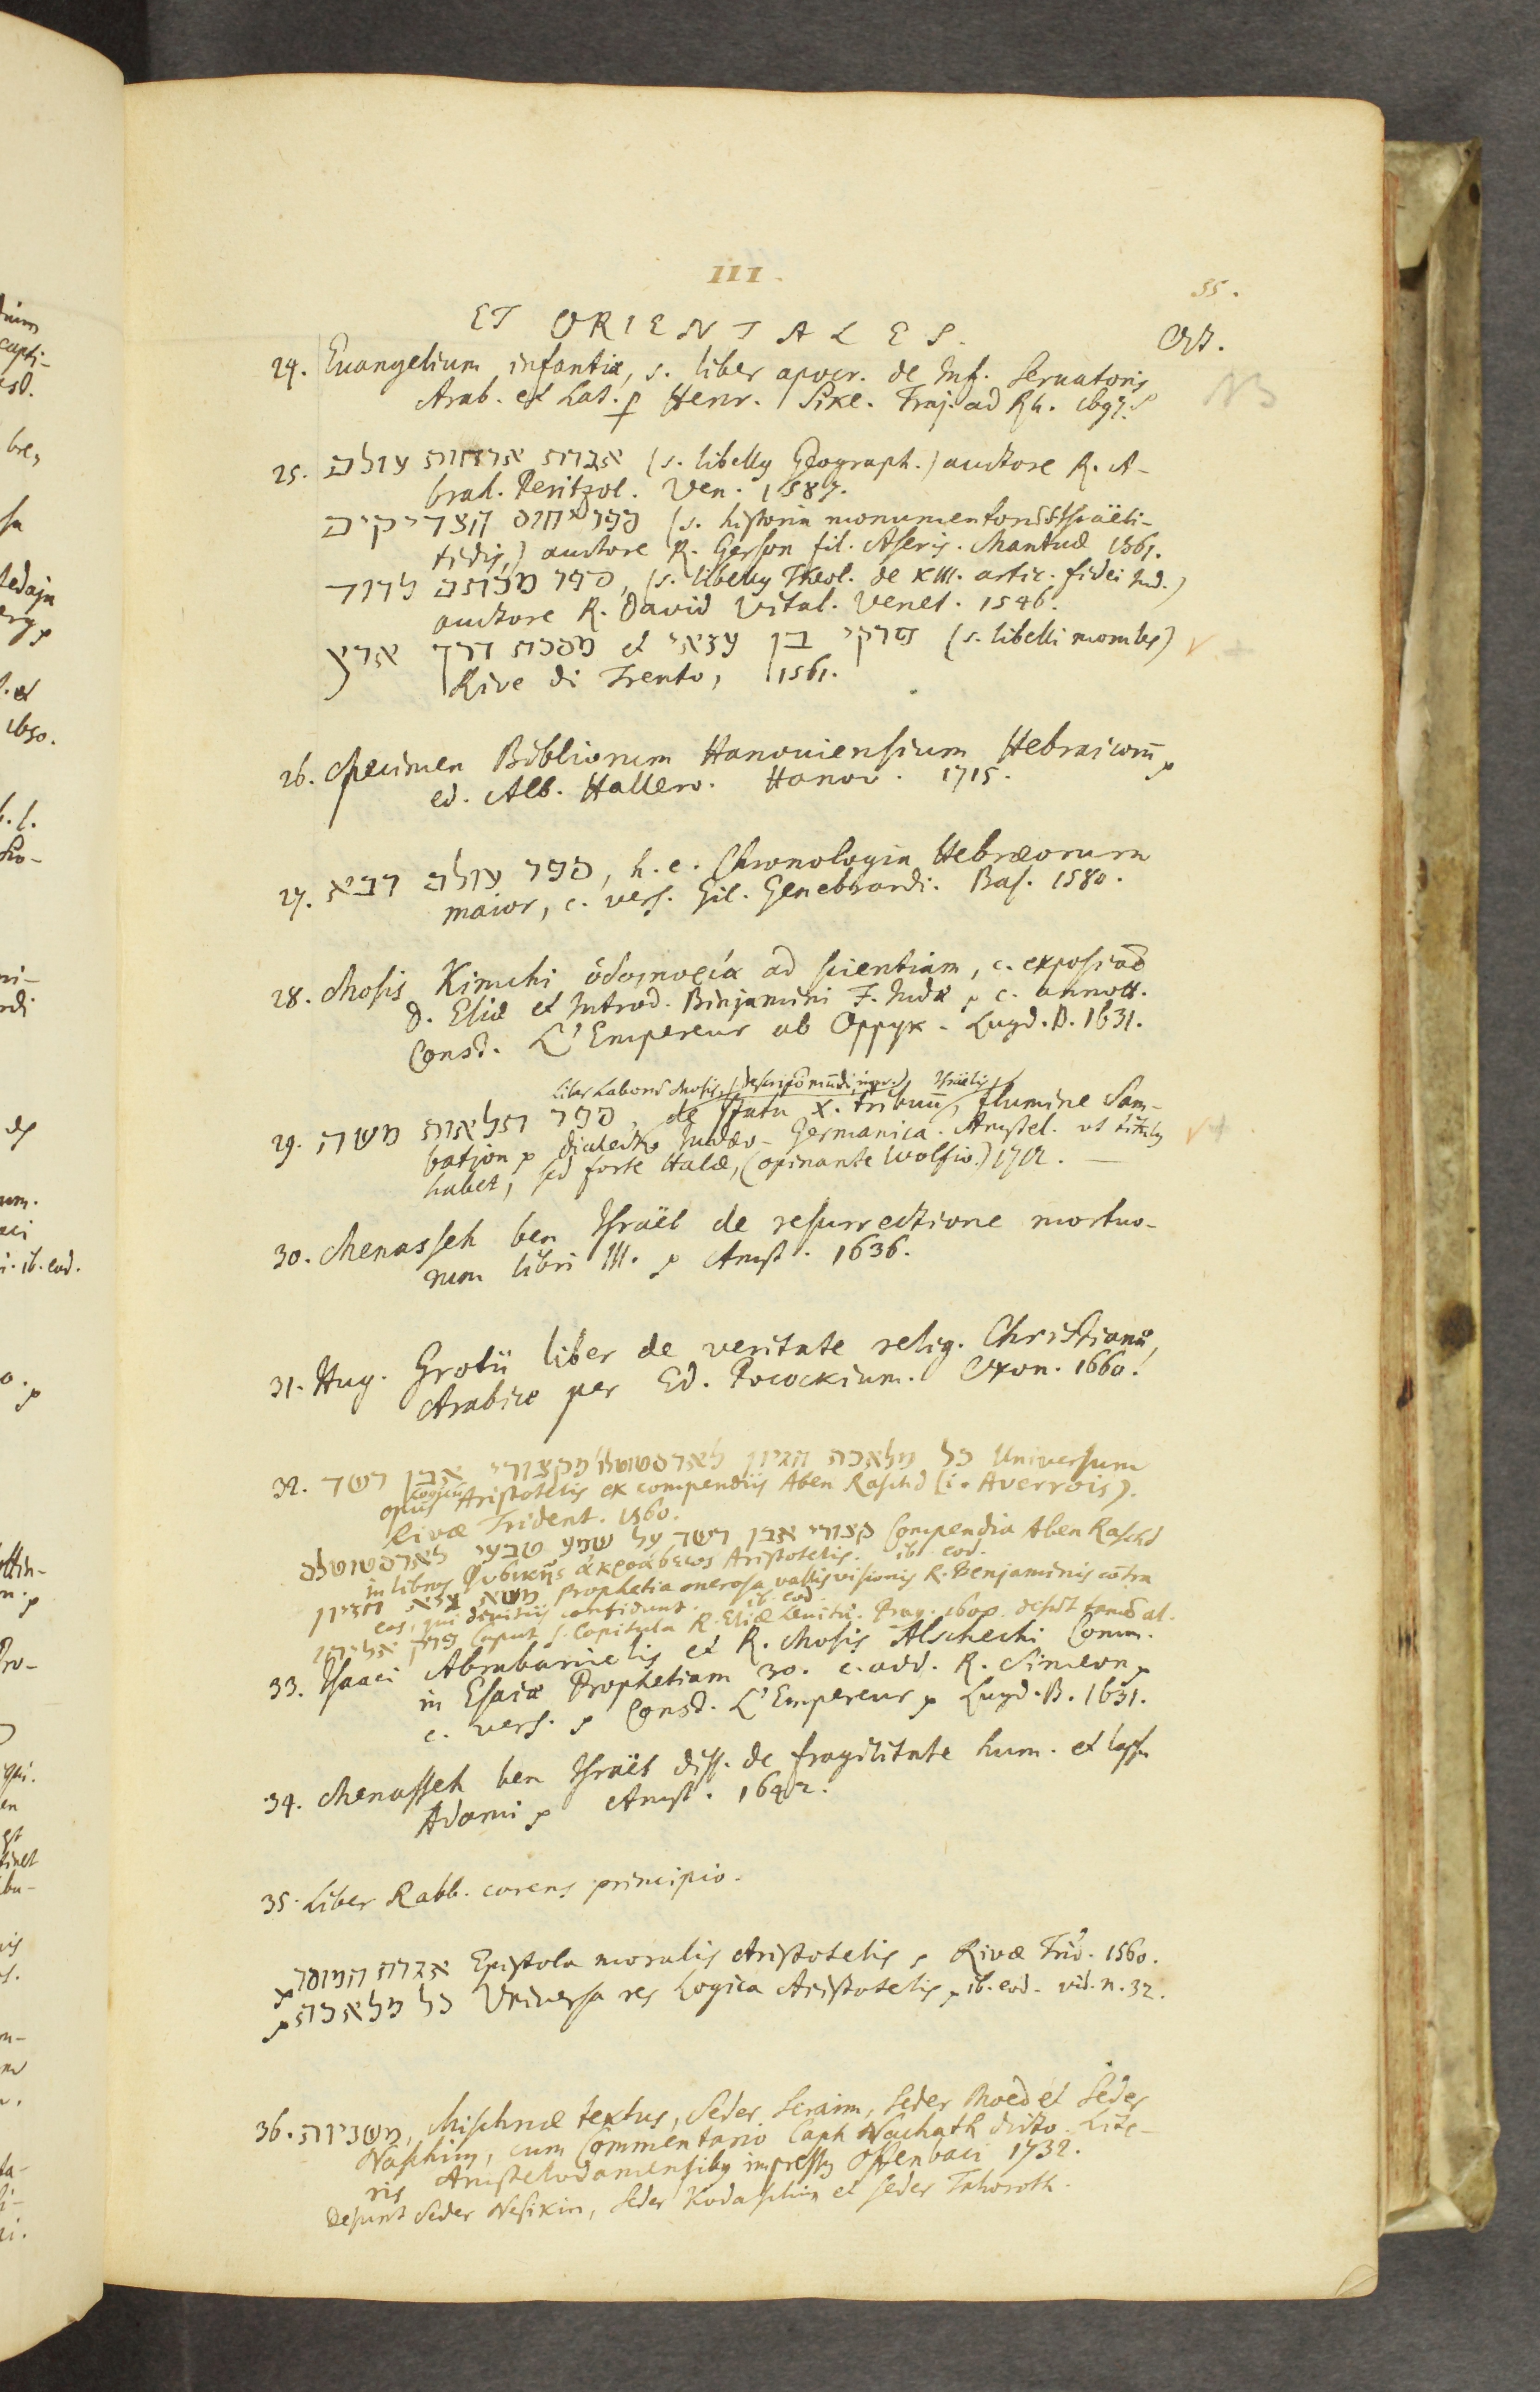 III.
55.
ET ORIENTALES.
Oct.
24. Euangelium infantiæ, s. liber apocr. de Inf. Seruatoris
Arab. et Lat. p Henr. Sike. Traj. ad Rh. 1697.
NB
25. אגרות ארחות עולם (s. libellg Geograph.) auctore R. A-
brah. Peritzol. Ven. 1587.
ספר יחוס הצדיקים (s. historia monumentorū Israëli-
ticis,) auctore R. Gerson fil. Aseris. Mantuæ 1561.
ספר מכתם לדוד, (s. libellg Theol. de XIII. artic. fidei Iud.)
auctore R. David Vital. Venet. 1546.
פרקי בן עזאי et מסכת דרך ארץ (s. libelli morales)
Rive di Trento, 1561.
26. Specimen Bibliorum Hanouiensium Hebraicorū
ed. Alb. Hallero. Hanov. 1715.
27. ספר עולם רבא, h. e. Chronologia Hebræorum
maior, c. vers. Gil. Genebrardi. Bas. 1580.
28. Mosis Kimchi ὁδοιπορία ad scientiam, c. exposiōe
D. Eliæ et Introd. Binjamini F. Iudæ, c. annott.
Const. L'Empereur ab Oppyk. Lugd. B. 1631.
liber Laborū Mosis, Israëlis
29. ספר תלאות משה, de statu X. tribuū, flumine Sam-
batjon dialecto Iudæo-Germanica. Amstel. vt titulg
habet, sed forte Halæ, (opinante Wolfio.) 1712.
30. Menasseh ben Israël de resurrectione mortuo-
rum libri III. Amst. 1636.
31. Hug. Grotii liber de veritate relig. Christianæ,
Arabice per Ed. Pocockium. Oxon. 1660.
32. כל מלאכת הגיון לארסטוטלו מקצורי אבן רשד Universum
opus Logicū Aristotelis ex compendiis Aben Raschd (i. Averrois).
Rivæ Trident. 1560.
קצורי אבן רשד על שמע טבעי לארסטוטלס Compendia Aben Raschd
in libros Φυσικῆς ἀκροάσεως Aristotelis. ib. eod.
משא גיא חזיון Prophetia onerosa vallis visionis R. Benjaminis cōtra
eos, qui divitiis confidunt. ib. eod.
פרק אליהו Caput s. Capitula R. Eliæ Levitæ. Prag.
33. Isaaci Abrabanielis et R. Mosis Alschechi Comm.
in Esaiæ Prophetiam 30. c. add. R. Simeon
c. vers. Const. L'Empereur Lugd. B. 1631.
34. Menasseh ben Israël diss. de fragilitate hum. et lapsu
Adami Amst. 1642.
35. Liber Rabb. carens principio.
אגרת המוסר Epistola moralis Aristotelis, Rivæ Trid. 1560.
כל מלאכת Vniversa res Logica Aristotelis, ib. eod. vid. n. 32.
36. משניות, Mischnæ textus, Seder Seraim, Seder Moed et Seder
Naschim, cum Commentario Caph Nachath dicto. Lite-
ris Amstelodamensibg impressg Offenbaci 1732.
Desunt Seder Nesikin, Seder Kodaschim et Seder Tahoroth.